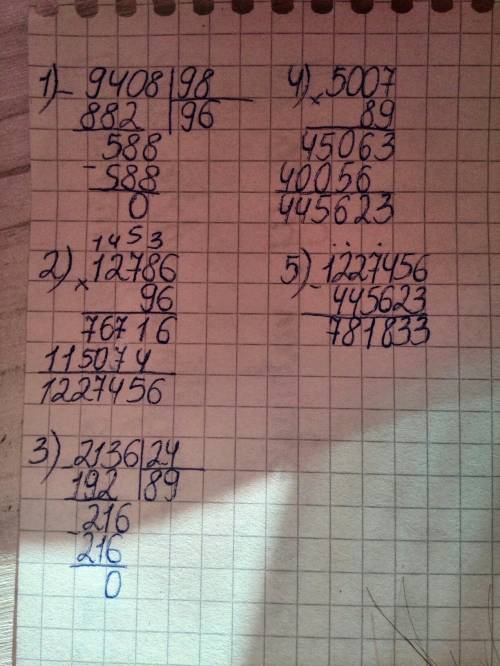 1) - 9408 | 98
882 | 96
588
- 588
0
1 4 5 3
2) × 12786
96
76716
115074
1227456
3) - 2136 | 24
192 | 89
- 216
216
0
4) × 5007
89
45063
40056
445623
5) - 1227456
445623
781833